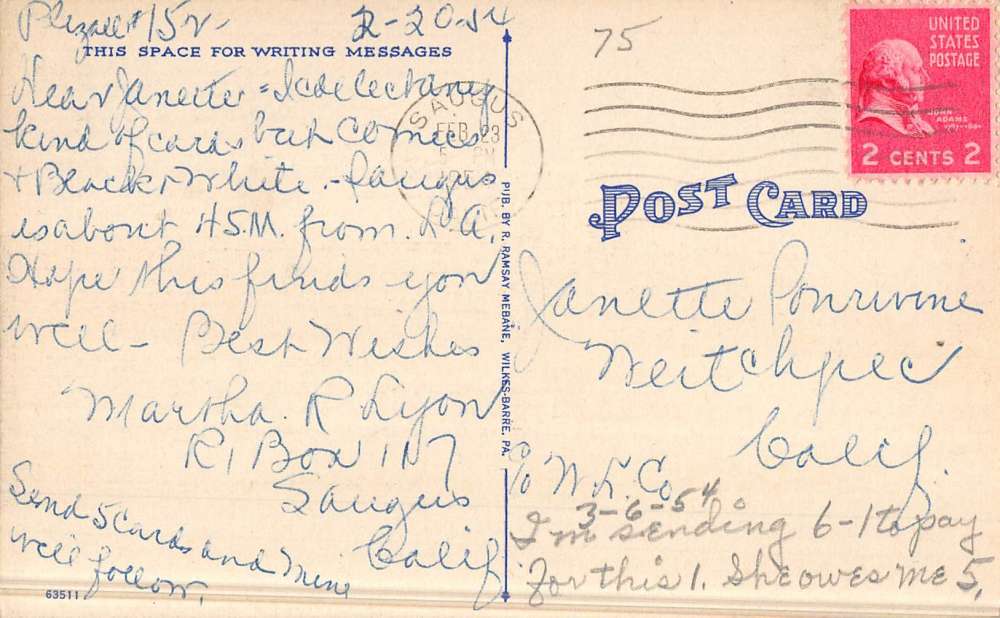 #152 2-20-54
THIS SPACE FOR WRITING MESSAGES
Dear Janette = I collect any
kind of cards but Comics
+ Black + White. - Saugus
is about 45 M. from. L.A.
Hope this finds you
well - Best Wishes
Martha. R Lyon
R1 Box 117
Saugus
Calif
Send 5 Cards and mine
will follow.
63511
PUB. BY R. RAMSAY MEBANE, WILKES-BARRE, PA.
75
SAUGUS
FEB 23
UNITED
STATES
POSTAGE
JOHN
ADAMS
2 CENTS 2
POST CARD
Janette
Weitchpec
Calif.
c/o W. L. Co
3-6-54
I'm sending 6-1 to pay
For this 1. She owes me 5.